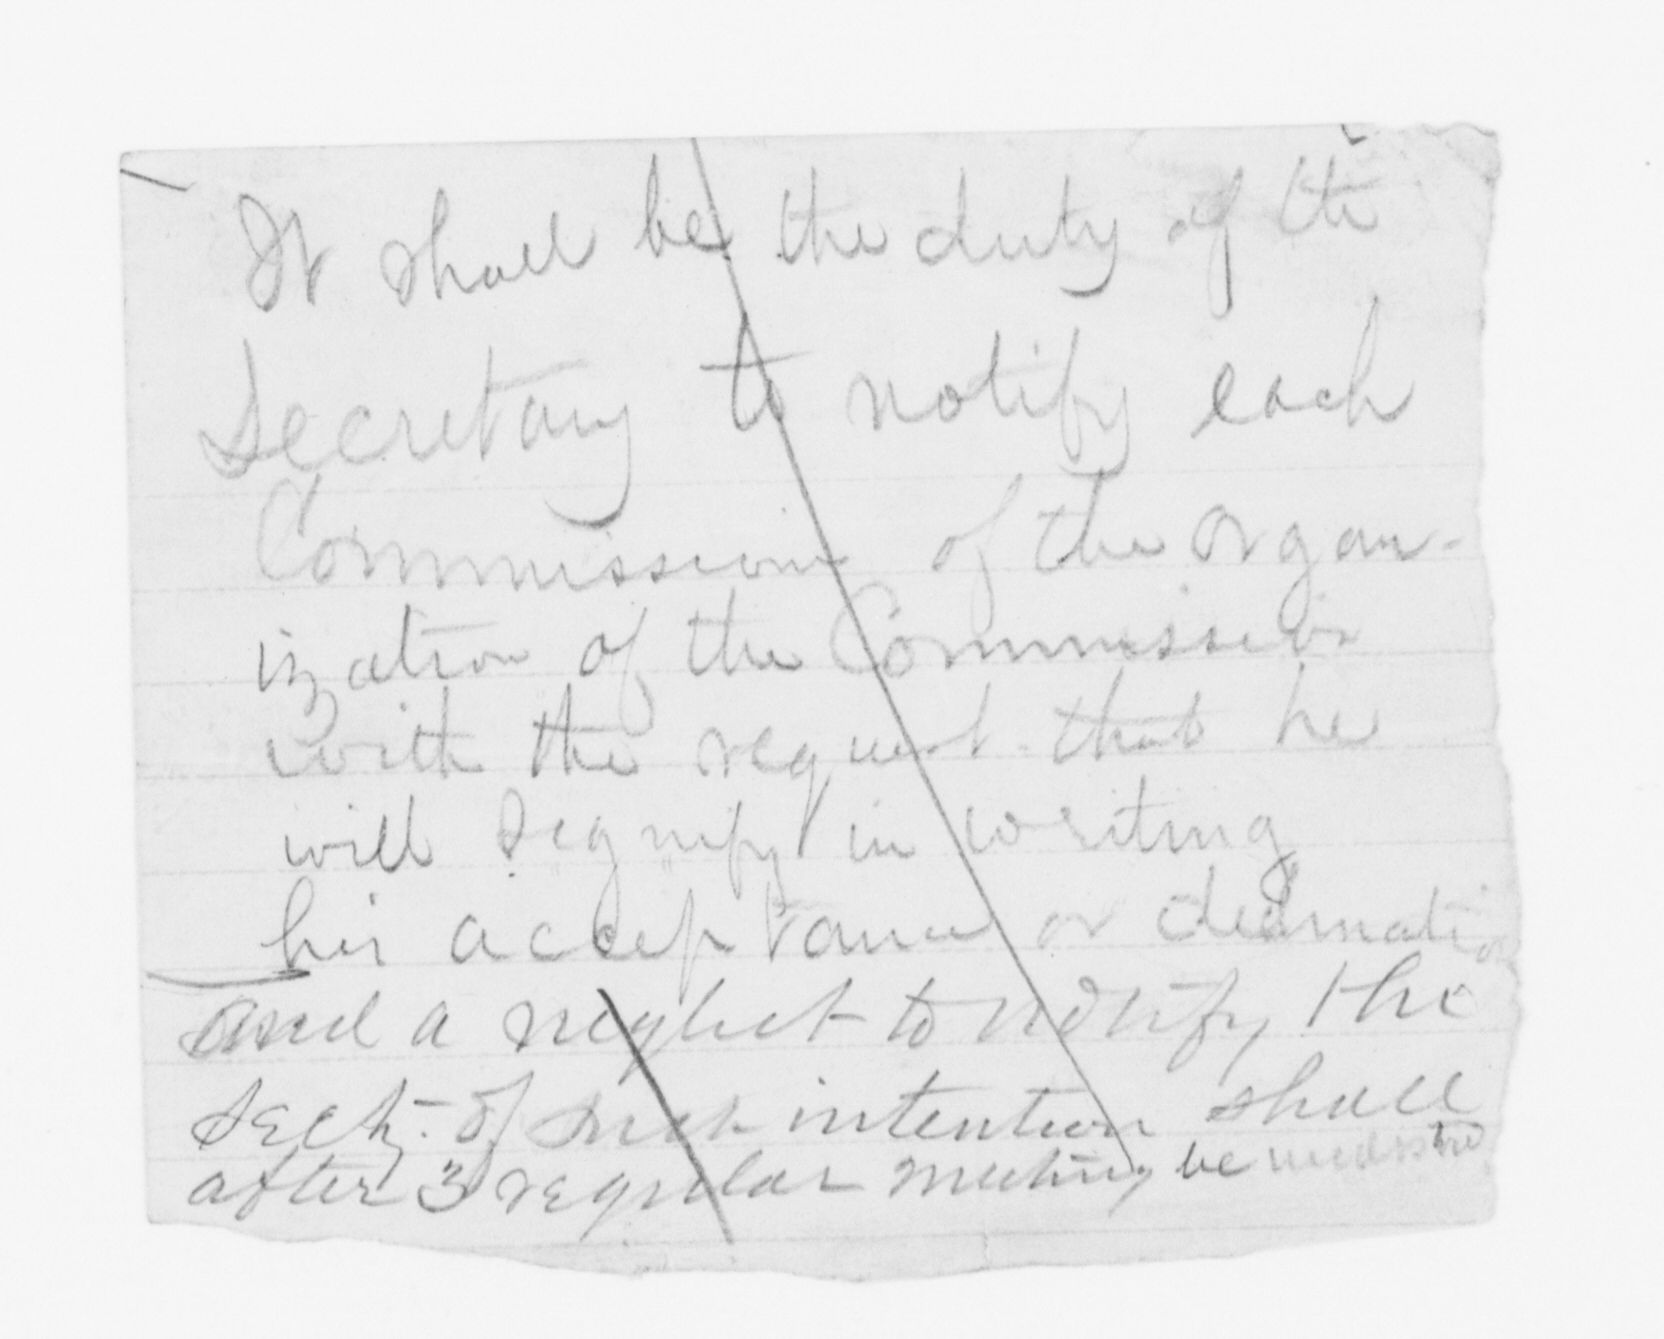 It shall be the duty of the
Secretary to notify each
Commission of the organ-
ization of the Commission
with the request that he
will signify in writing
his acceptance or declination
and a neglect to notify the
Secty. of such intention shall
after 3 regular meeting be